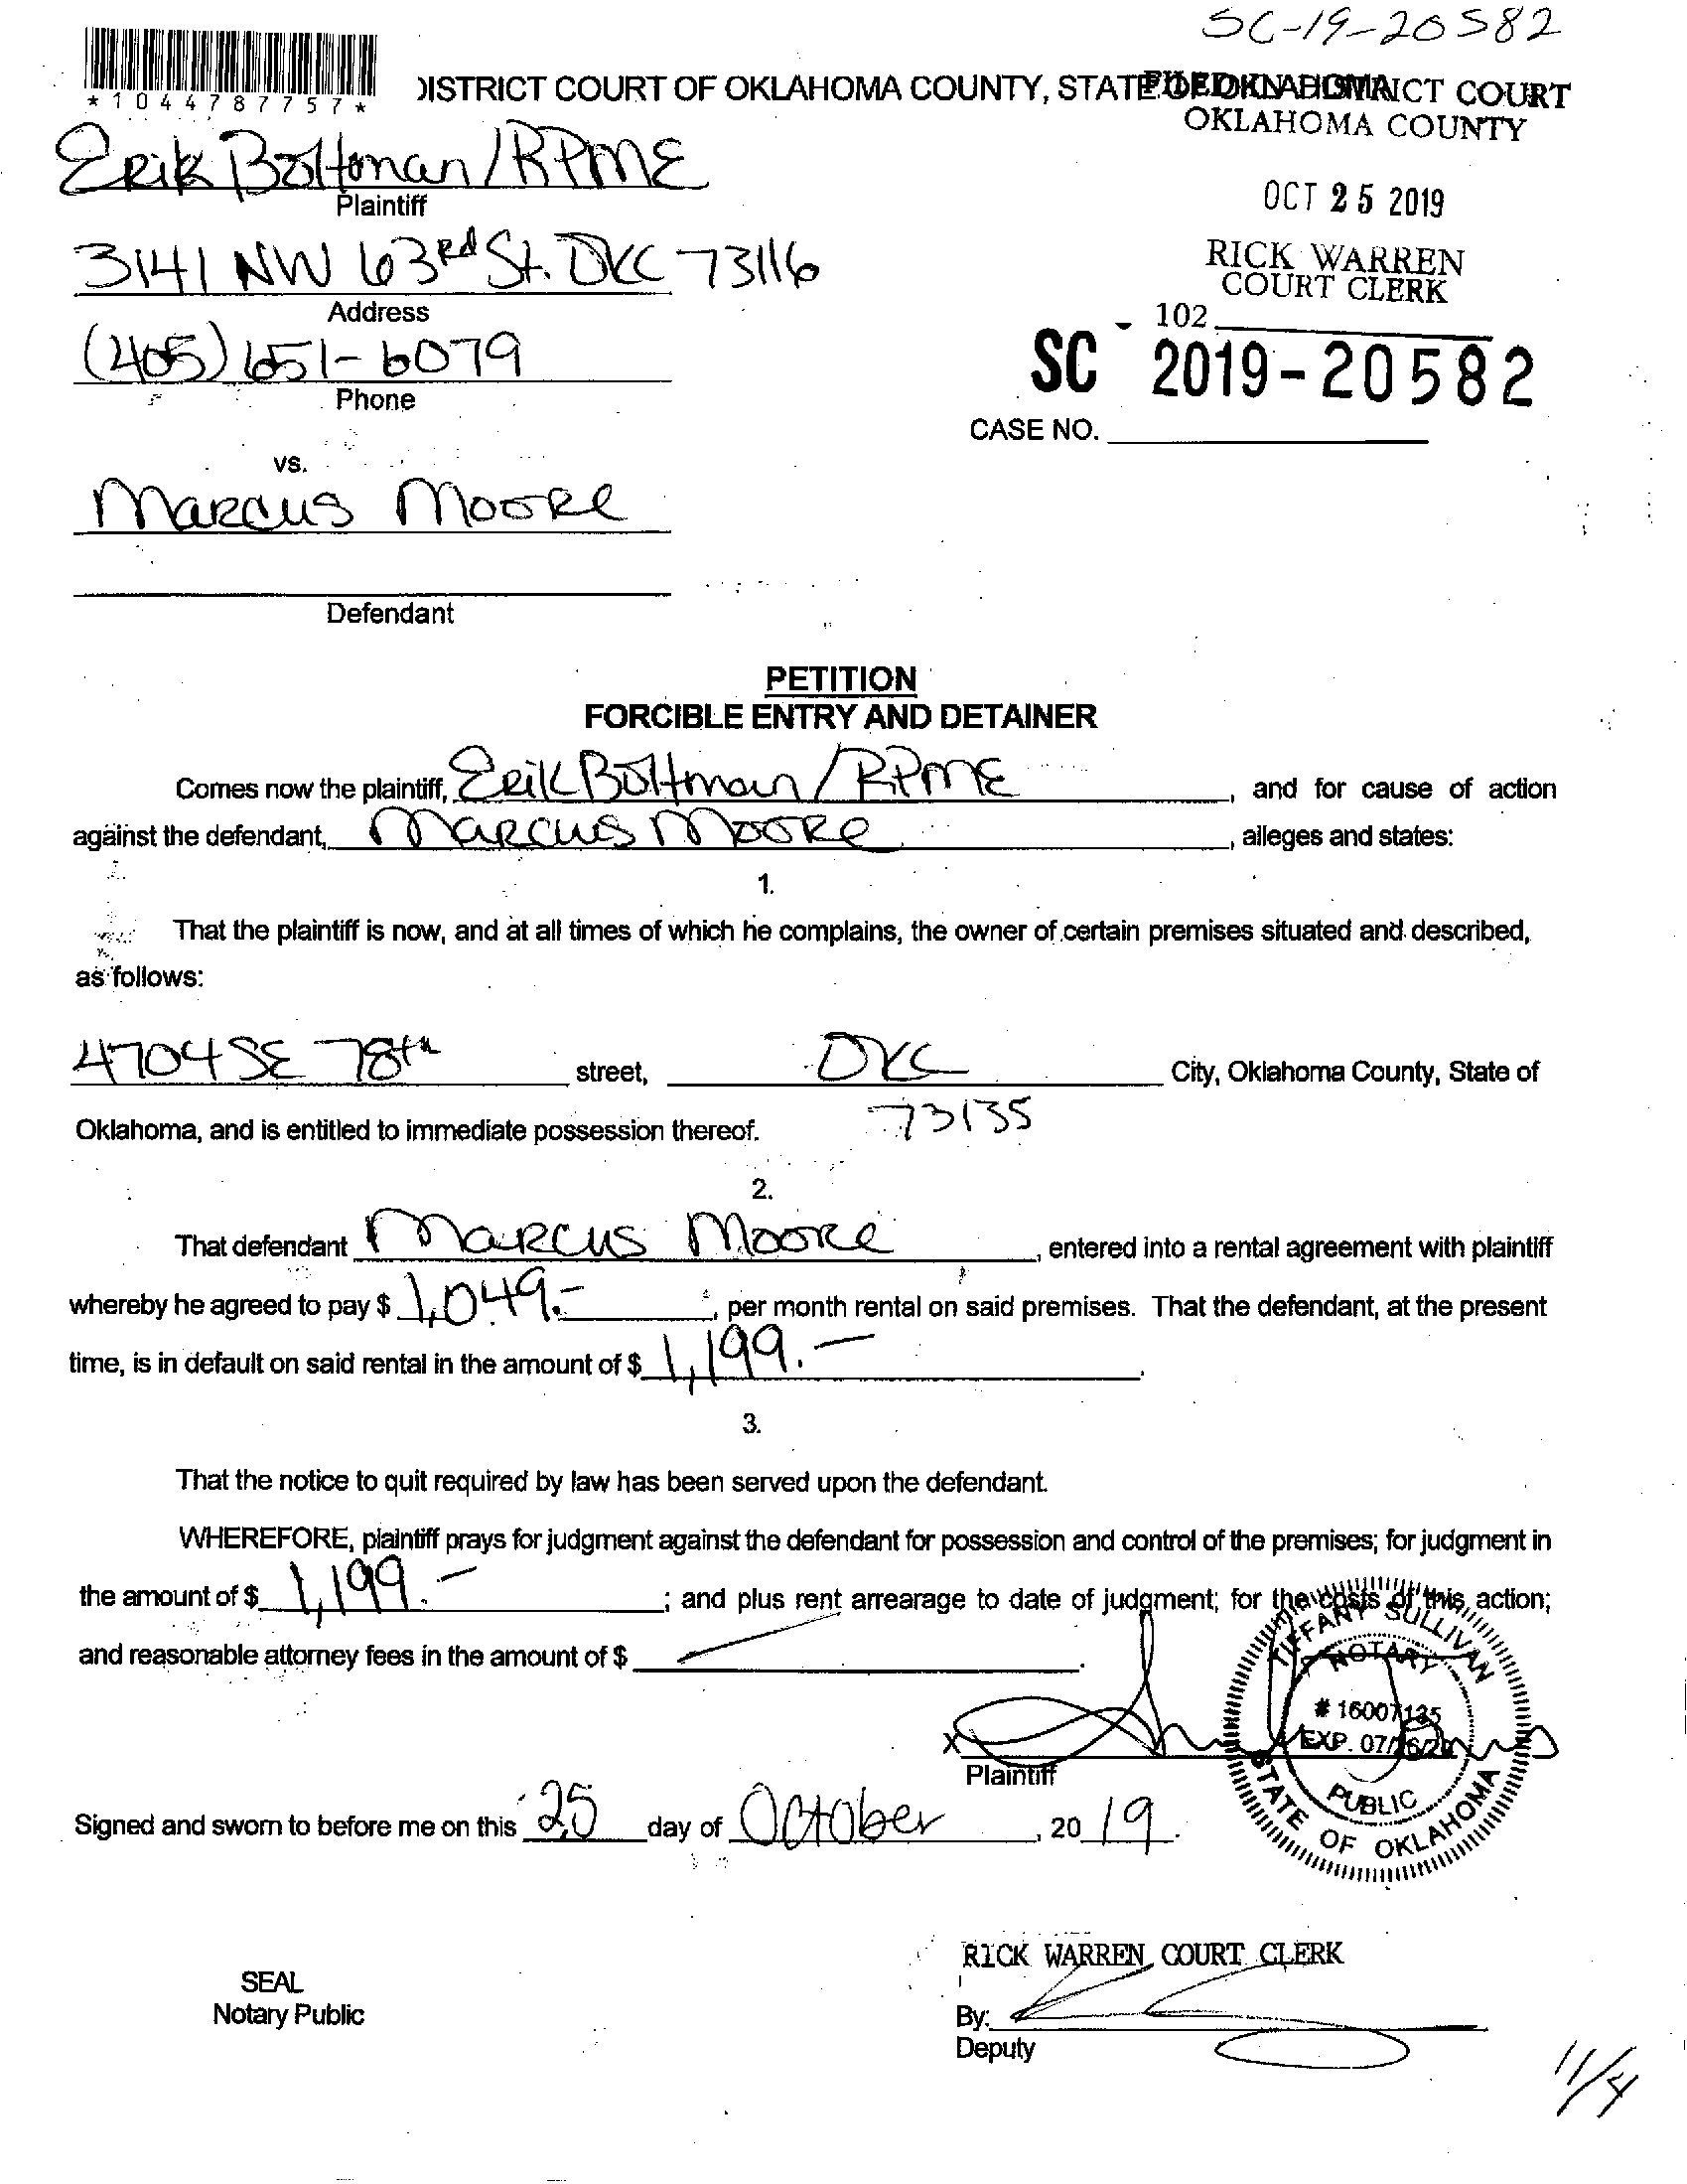 SC-19-20582
*1044787757*
DISTRICT COURT OF OKLAHOMA COUNTY, STATE OF OKLAHOMA
FILED IN DISTRICT COURT
OKLAHOMA COUNTY
Erik Boltman/RPME
Plaintiff
OCT 25 2019
3141 NW 63rd St. OKC 73116
Address
RICK WARREN
COURT CLERK
102
(405) 651-6079
Phone
SC 2019-20582
CASE NO.
vs.
Marcus Moore
Defendant
PETITION
FORCIBLE ENTRY AND DETAINER
Comes now the plaintiff, Erik Boltman/RPME, and for cause of action
against the defendant, Marcus Moore, alleges and states:
1.
That the plaintiff is now, and at all times of which he complains, the owner of certain premises situated and described,
as follows:
4704 SE 78th street, OKC City, Oklahoma County, State of
73135
Oklahoma, and is entitled to immediate possession thereof.
2.
That defendant Marcus Moore, entered into a rental agreement with plaintiff
whereby he agreed to pay $ 1,049.-, per month rental on said premises. That the defendant, at the present
time, is in default on said rental in the amount of $ 1,199.-.
3.
That the notice to quit required by law has been served upon the defendant.
WHEREFORE, plaintiff prays for judgment against the defendant for possession and control of the premises; for judgment in
the amount of $ 1,199.-; and plus rent arrearage to date of judgment; for the costs of this action;
and reasonable attorney fees in the amount of $.
TIFFANY SULLIVAN
NOTARY
# 16007135
EXP. 07/
PUBLIC
STATE OF OKLAHOMA
X
Plaintiff
Signed and sworn to before me on this 25 day of October, 2019.
RICK WARREN, COURT CLERK
SEAL
Notary Public
By:
Deputy
11/4